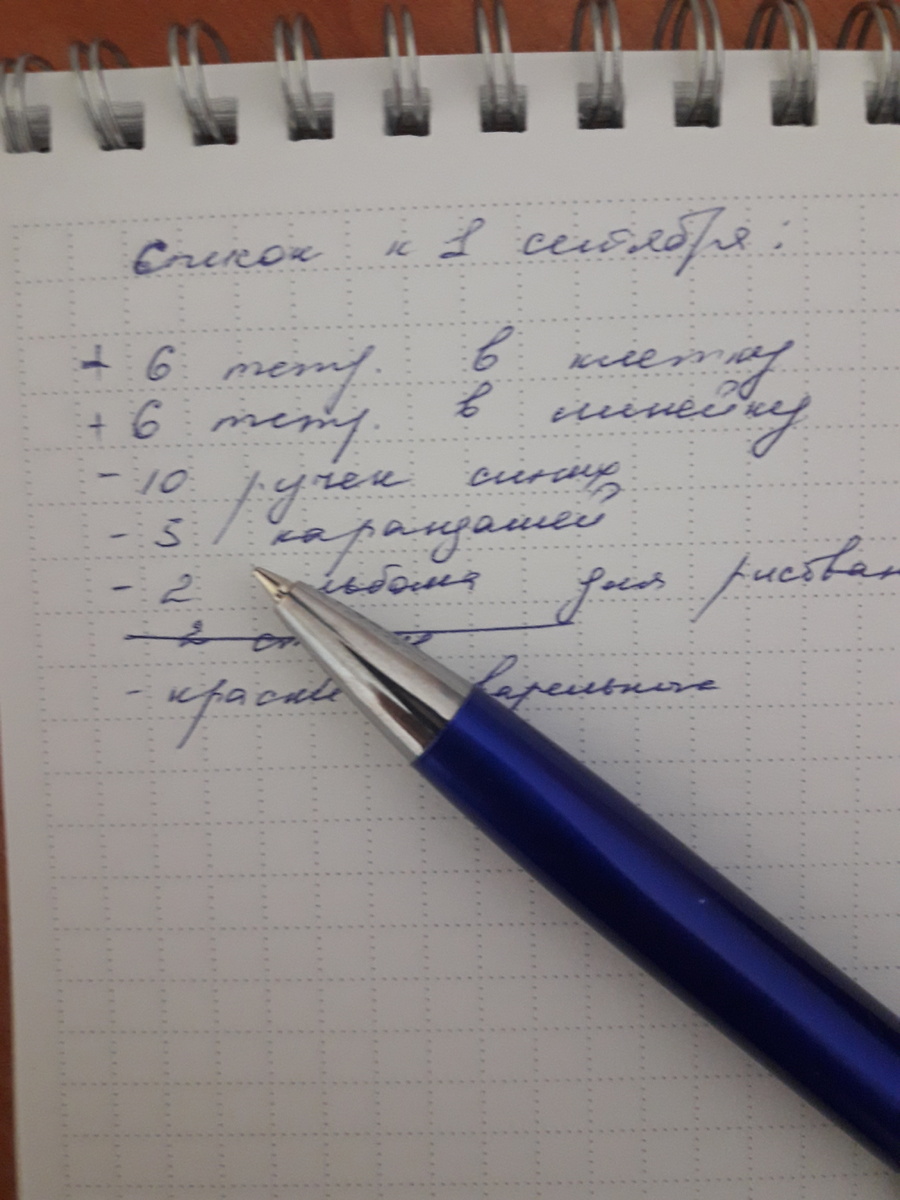 Список к 1 сентября:
+ 6 тетр. в клетку
+ 6 тетр. в линейку
- 10 ручек синих
- 5 карандашей
- 2 льбома для рисован
2
- краски варельные